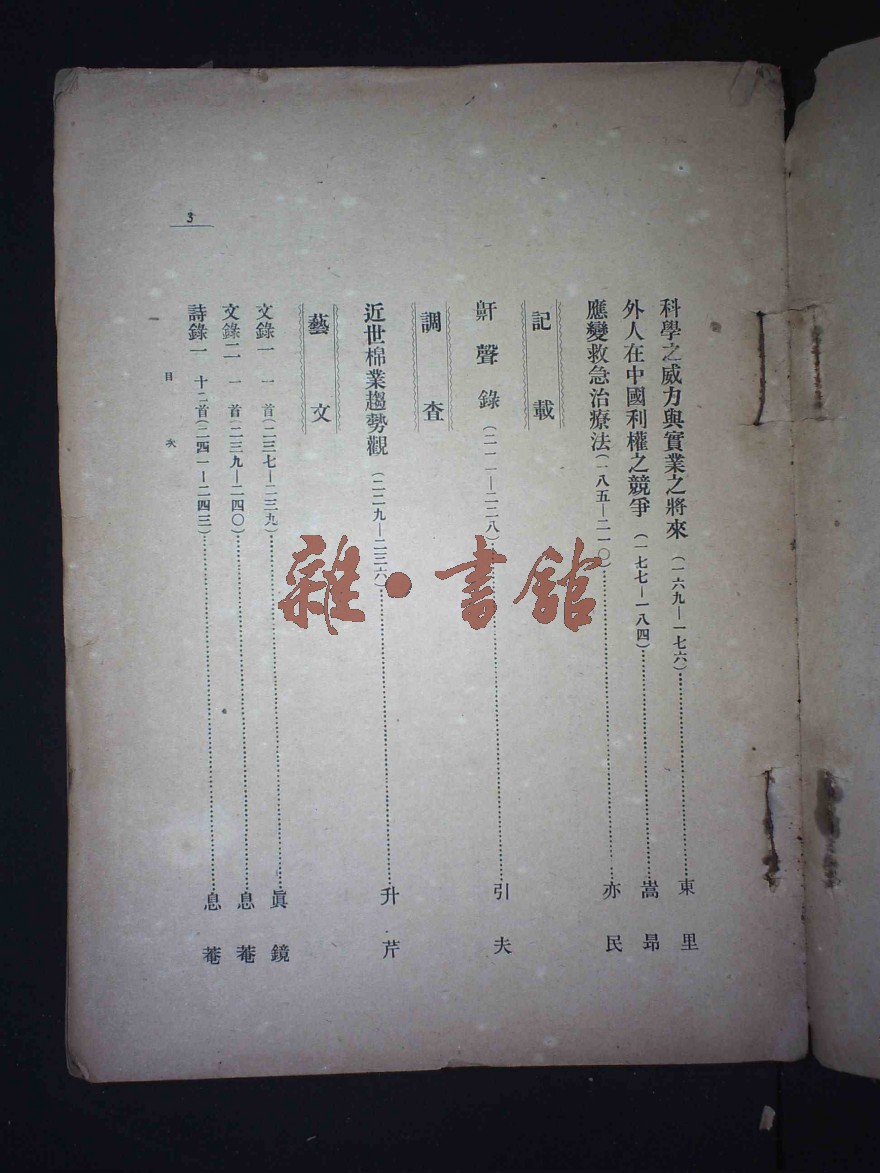 科學之威力與實業之將來（一六九—一七六）東里
外人在中國利權之競爭（一七七—一八四）嵩昻
應變救急治療法（一八五—二一〇）亦民
記載
鼾聲錄（二一一—二二八）引夫
調查
近世棉業趨勢觀（二二九—二三六）升芹
藝文
文錄一 一首（二三七—二三九）眞鏡
文錄二 一首（二三九—二四〇）息菴
詩錄一 十二首（二四一—二四三）息菴
目次
3
雜·書館